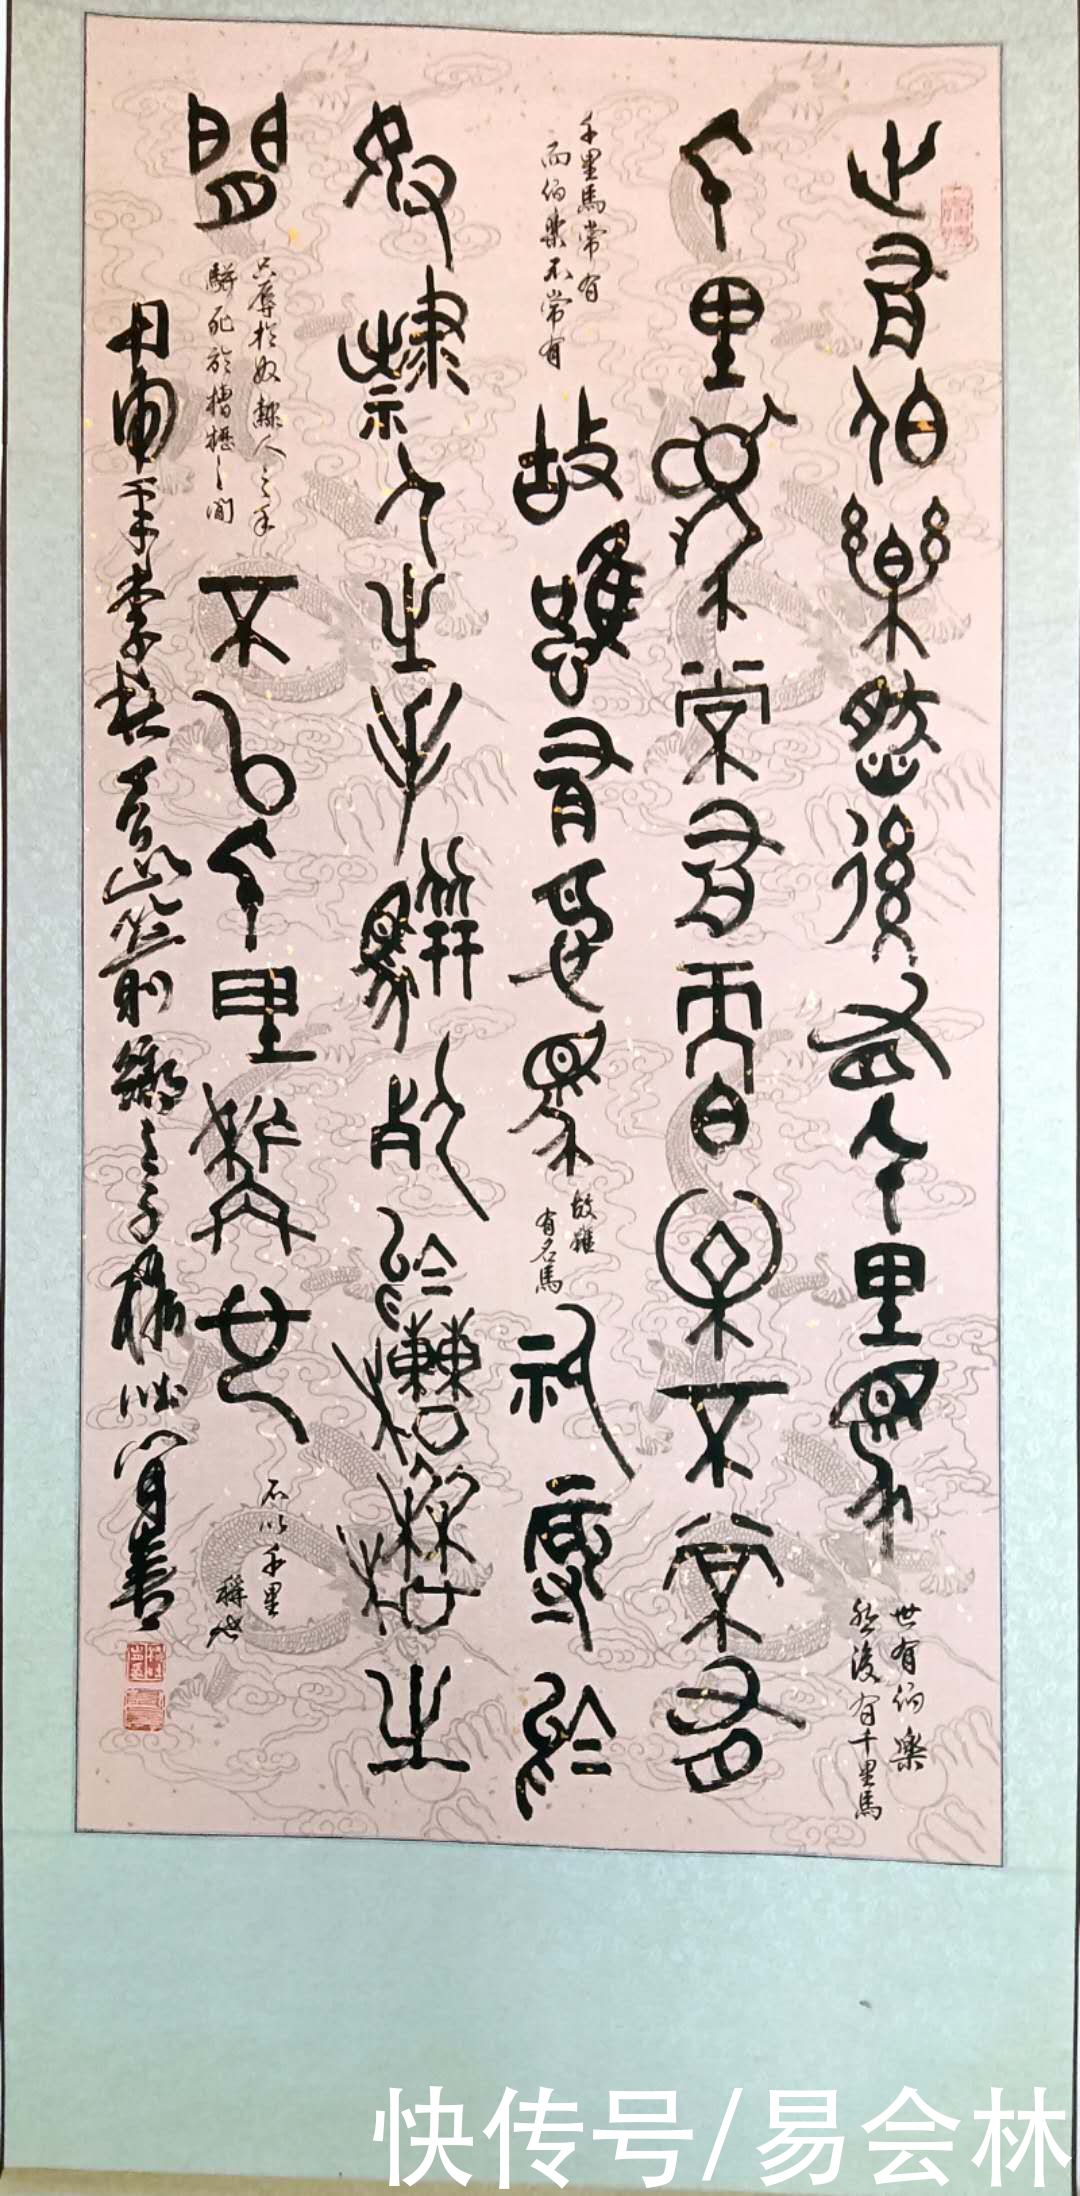 世有伯樂然後有千里馬
世有伯樂
然後有千里馬
千里馬常有而伯樂不常有
千里馬常有
而伯樂不常有
故雖有名馬
故雖
有名馬
祇辱於
奴隸人之手駢死於槽櫪之
間
只辱於奴隸人之手
駢死於槽櫪之間
不以千里稱也
不以千里
稱也
快传号/易会林